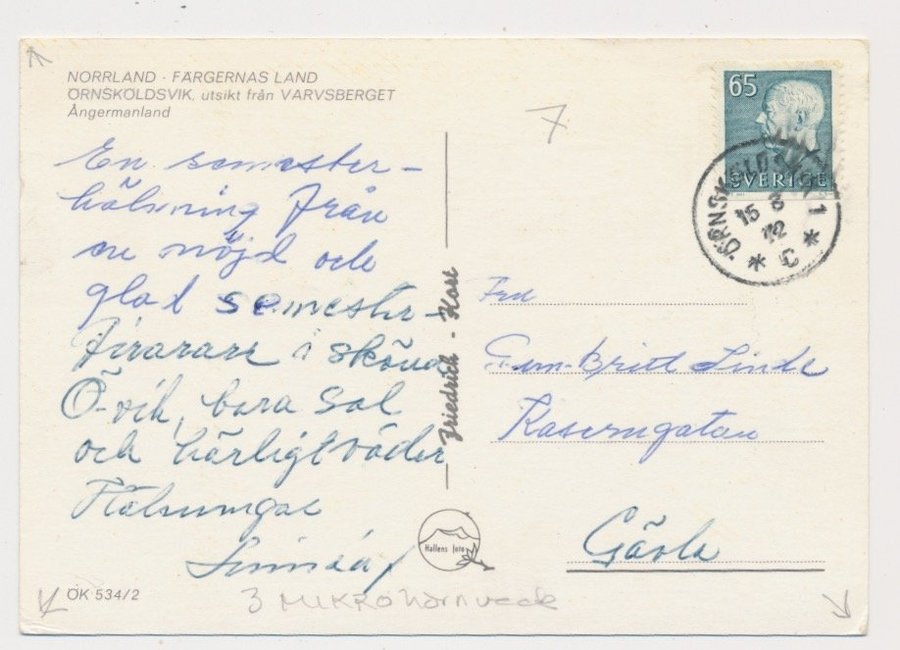 NORRLAND · FÄRGERNAS LAND
ÖRNSKÖLDSVIK, utsikt från VARVSBERGET
Ångermanland
7
65
SVERIGE
ÖRNSKÖLDSVIK 1
15 3
72
* C *
En semester-
hälsning från
en nöjd och
glad semester-
firarare i sköna
Ö-vik, bara sol
och härligt väder
Hälsningar
Linnéa
Friedrich - Kort
Fru
Gun-Britt Linde
Kaserngatan
Gävle
Hallens foto
ÖK 534/2
3 MIKRO hörnveck